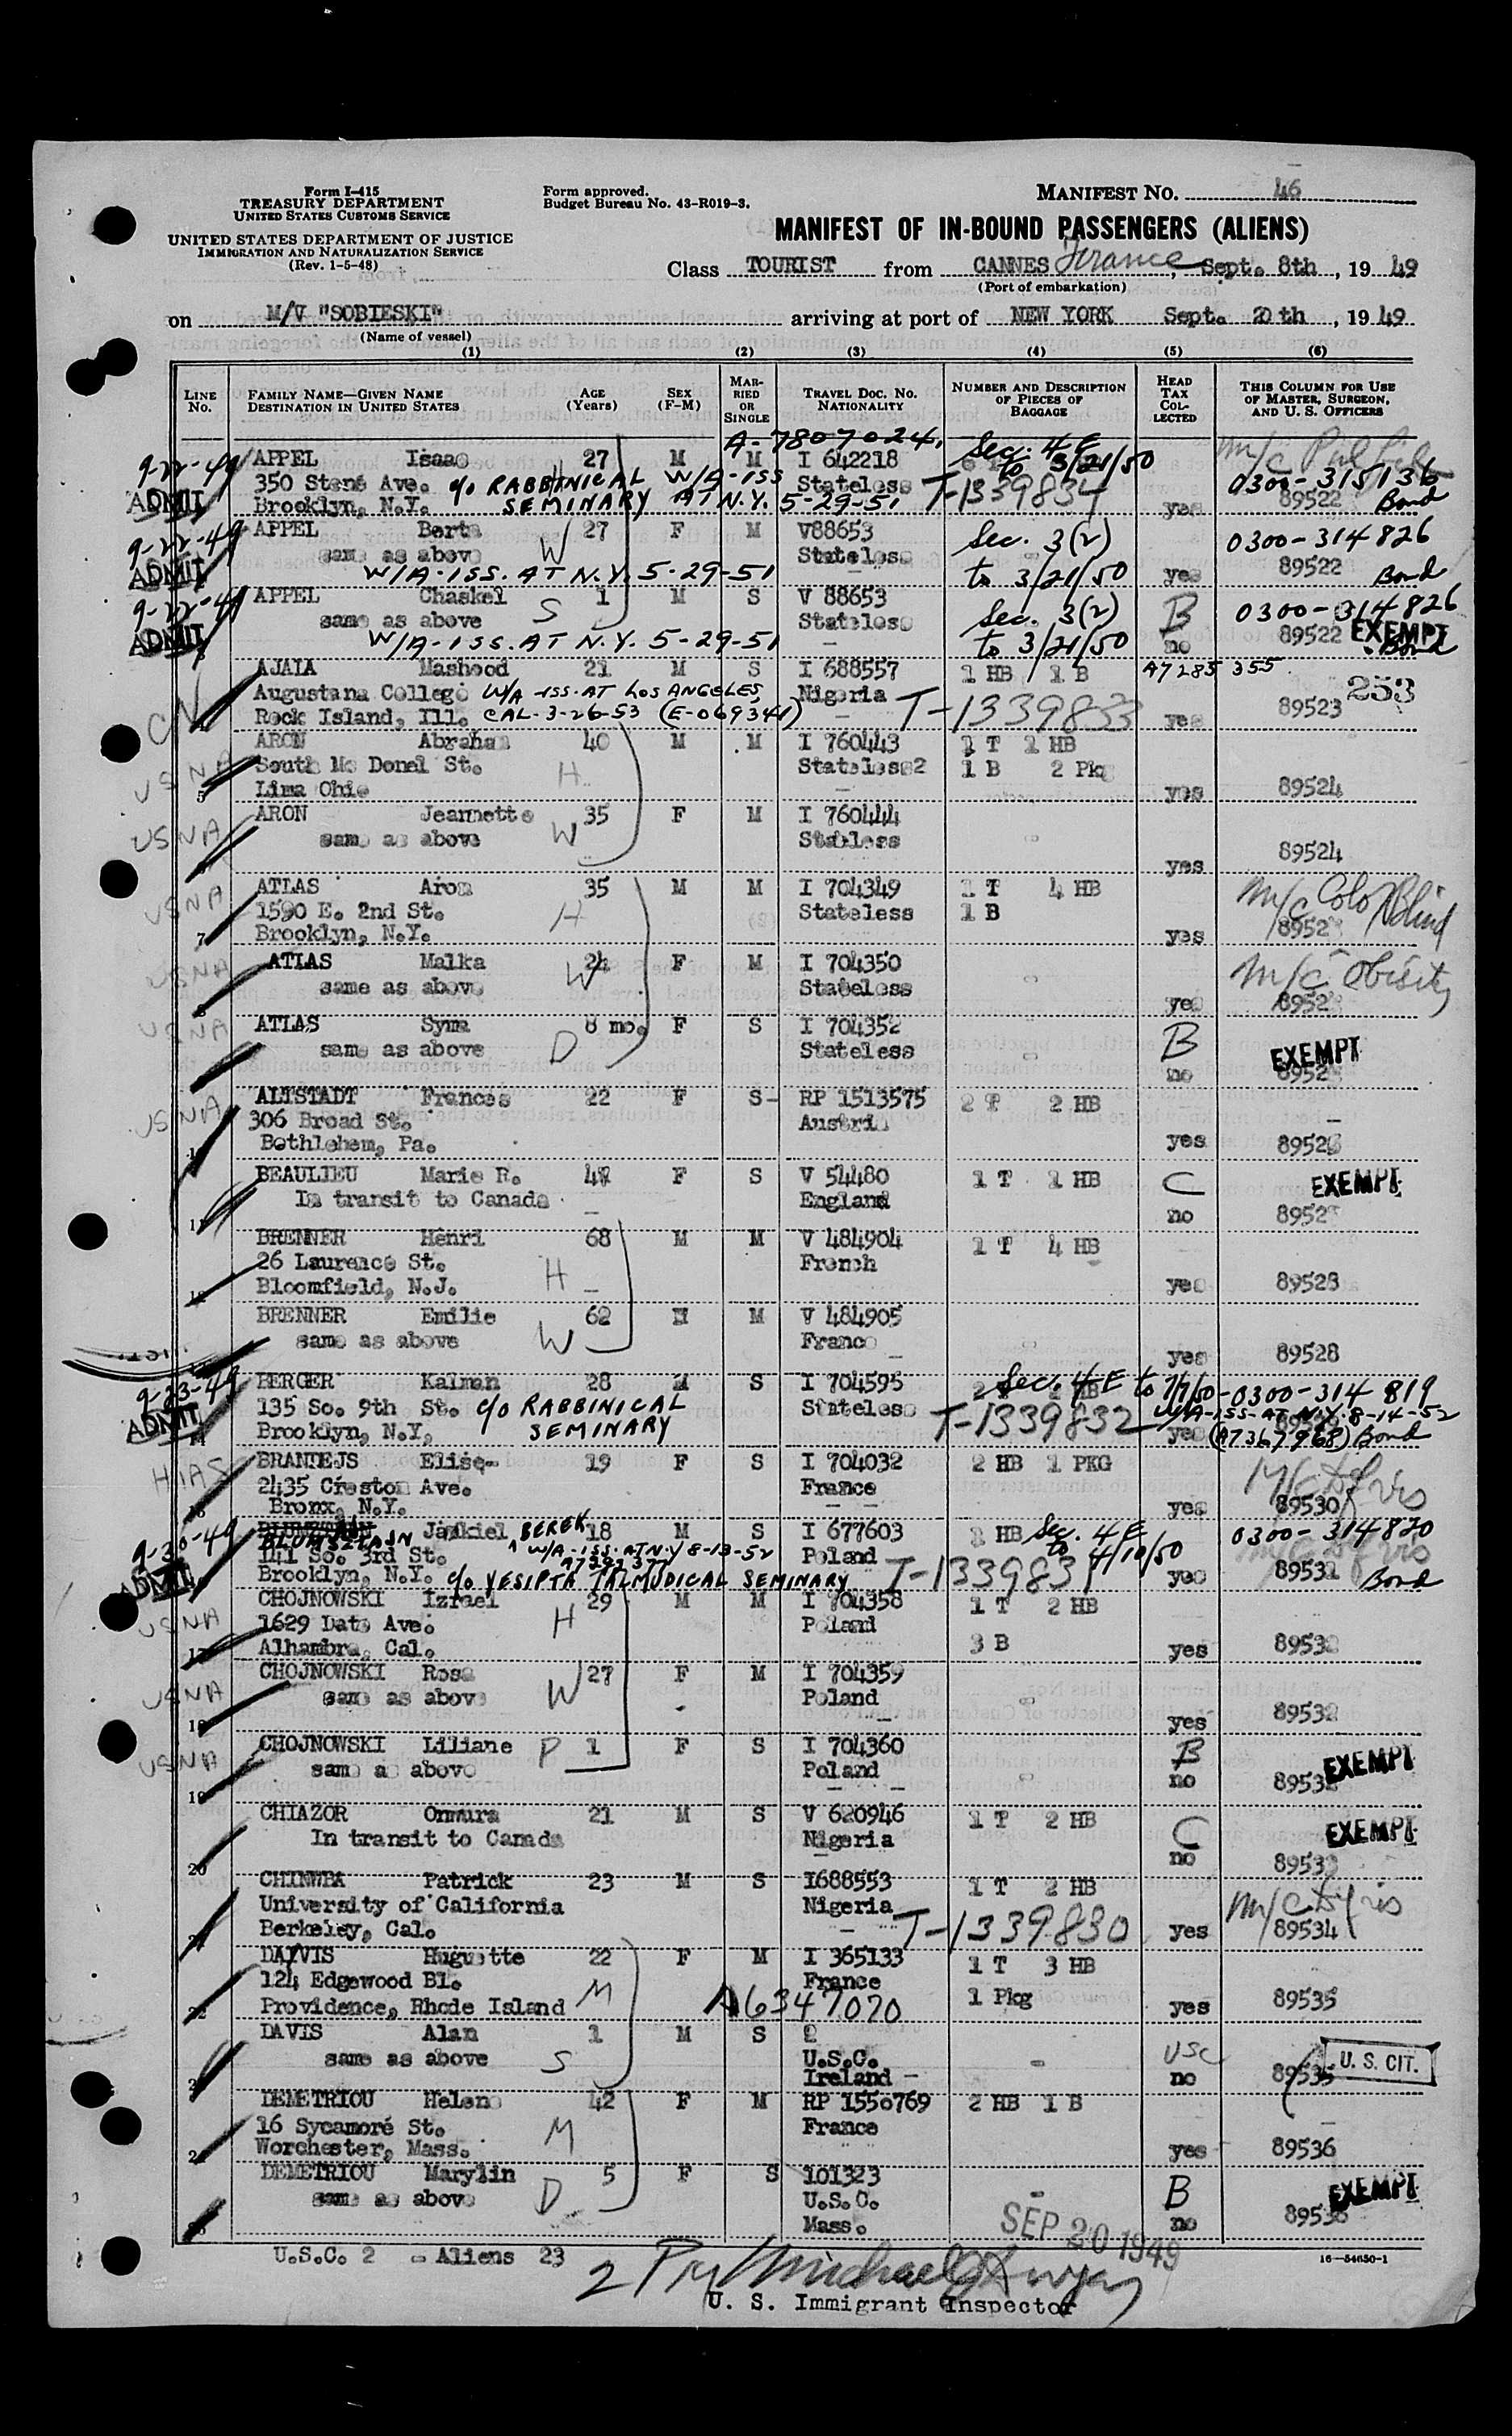 Form I-415
TREASURY DEPARTMENT
UNITED STATES CUSTOMS SERVICE
UNITED STATES DEPARTMENT OF JUSTICE
IMMIGRATION AND NATURALIZATION SERVICE
(Rev. 1-5-48)
Form approved.
Budget Bureau No. 43-R019-3.
MANIFEST NO. 46
MANIFEST OF IN-BOUND PASSENGERS (ALIENS)
Class TOURIST from CANNES France, Sept. 8th, 1949
(Port of embarkation)
on M/V "SOBIESKI" arriving at port of NEW YORK Sept. 20th, 1949
(Name of vessel)
(1) (2) (3) (4) (5) (6)
LINE No. FAMILY NAME—GIVEN NAME DESTINATION IN UNITED STATES AGE (Years) SEX (F-M) MARRIED OR SINGLE TRAVEL DOC. No. NATIONALITY NUMBER AND DESCRIPTION OF PIECES OF BAGGAGE HEAD TAX COLLECTED THIS COLUMN FOR USE OF MASTER, SURGEON, AND U. S. OFFICERS
A-7807024. Sec. 4 E
9-22-49 APPEL Isaac 27 M M I 642218 to 3/21/50
350 Stone Ave. c/o RABBINICAL W/A-ISS Stateless T-1339834 0300-315136
ADMIT Brooklyn, N.Y. SEMINARY AT N.Y. 5-29-51 yes 89522 Bond
9-22-49 APPEL Berta 27 F M V88653 Sec. 3(2) 0300-314826
same as above W Stateless
ADMIT W/A-ISS. AT N.Y. 5-29-51 to 3/21/50 yes 89522 Bond
9-22-49 APPEL Chaskel 1 M S V 88653 Sec. 3(2) B 0300-314826
same as above S Stateless
ADMIT W/A-ISS. AT N.Y. 5-29-51 to 3/21/50 no 89522 EXEMPT Bond
AJAIA Mashood 21 M S I 688557 1 HB 1 B A7285 355
Augustana College W/A-ISS-AT LOS ANGELES Nigeria 253
Rock Island, Ill. CAL-3-26-53 (E-069341) T-1339833 yes 89523
USNA ARON Abraham 40 M M I 760443 1 T 1 HB
South Mc Donel St. H Stateless2 1 B 2 Pkg
5 Lima Ohio yes 89524
USNA ARON Jeannette 35 F M I 760444
same as above W Stateless
yes 89524
USNA ATLAS Aron 35 M M I 704349 1 T 4 HB m/c Color Blind
1590 E. 2nd St. H Stateless 1 B
7 Brooklyn, N.Y. yes
USNA ATLAS Malka 24 F M I 704350 m/c Obisity
same as above W Stateless
8 yes
USNA ATLAS Syma 8 mo. F S I 704352 B
same as above D Stateless EXEMPT
no
USNA ALTSTADT Frances 22 F S- RP 1513575 2 T 2 HB
306 Broad St. Austria
Bethlehem, Pa. yes
BEAULIEU Marie R. F S V 54480 1 T 1 HB C EXEMPT
In transit to Canada England
no
BRENNER Henri 68 M M V 484904 1 T 4 HB
26 Laurence St. French
H Bloomfield, N.J. yes 89528
BRENNER Emilie 62 M M V 484905
same as above W France
yes 89528
9-23-49 BERGER Kalman 28 M S I 704595 Sec. 4 E to 7/7/50-0300-314 819
135 So. 9th St. c/o RABBINICAL Stateless T-1339832 W/A-ISS-AT N.Y. 8-14-52
ADMIT Brooklyn, N.Y. SEMINARY yes (A7367968) Bond
HIAS BRANTEJS Elise 19 F S I 704032 2 HB 1 PKG
2435 Creston Ave. France
Bronx, N.Y. yes 89530
Jankiel BEREK 18 M S I 677603 HB Sec. 4 E 0300-314820
141 So. 3rd St. W/A-ISS-AT N.Y 8-13-52 Poland to 4/10/50
ADMIT Brooklyn, N.Y. c/o YESIPTA TALMUDICAL SEMINARY T-1339831 yes 89531 Bond
USNA CHOJNOWSKI Izrael 29 M M I 704358 1 T 2 HB
1629 Date Ave. H Poland
17 Alhambra, Cal. 3 B yes 89532
USNA CHOJNOWSKI Rosa 27 F M I 704359
same as above W Poland
18 yes 89532
USNA CHOJNOWSKI Liliane 1 F S I 704360 B
same as above Poland EXEMPT
19 no
CHIAZOR Onmura 21 M S V 620946 1 T 2 HB C EXEMPT
In transit to Canada Nigeria
20 no 89533
CHINWBA Patrick 23 M S I688553 1 T 2 HB
University of California Nigeria
Berkeley, Cal. T-1339830 yes 89534
Huguette 22 F M I 365133 1 T 3 HB
124 Edgewood Bl. M France
Providence, Rhode Island A6347070 1 Pkg yes 89535
DAVIS Alan 1 M S
same as above S U.S.C. USC U. S. CIT.
Ireland - no 89535
DEMETRIOU Helene 42 F M RP 1550769 2 HB 1 B
16 Sycamore St. M France
Worchester, Mass. yes 89536
DEMETRIOU Marylin 5 F S 101323 B EXEMPT
same as above D U.S.C.
Mass. no 89536
SEP 20 1949
U.S.C. 2 - Aliens 23
16—54650-1
U. S. Immigrant Inspector